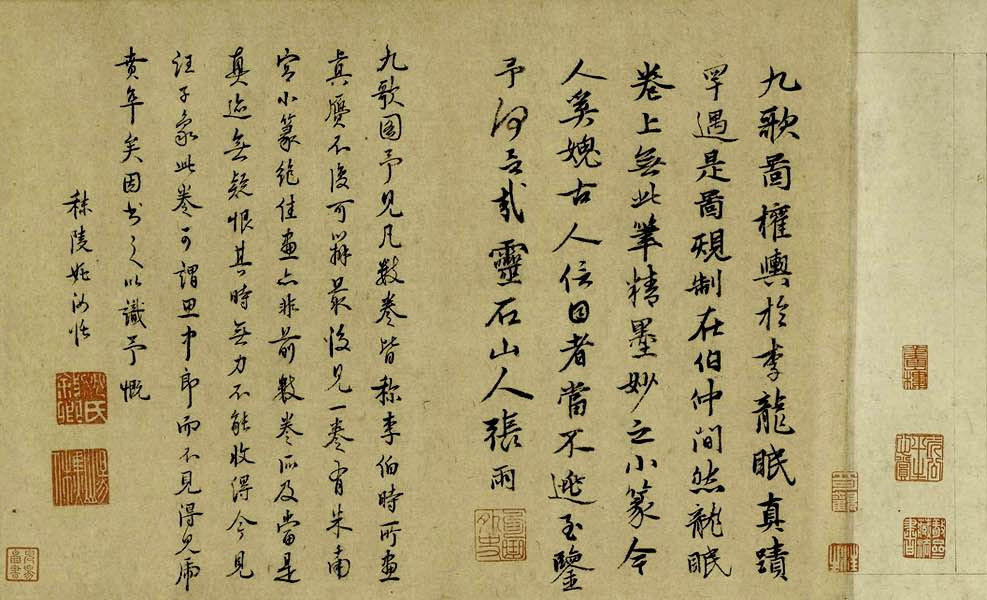 九歌圖權輿於李龍眠真蹟
罕遇是圖規制在伯仲間然龍眠
卷上無此筆精墨妙之小篆令
人奚媿古人信目者當不逃至鑒
予何言哉靈石山人張雨
九歌圖予見凡數卷皆称李伯時所畫
真贗不復可辨最後見一卷有朱南
宮小篆絶佳畫亦非前數卷所及當是
真迹無疑恨其時無力不能收得今見
汪子象此卷可謂思中郎而不見得見虎
賁年矣因書之以識予慨
秣陵姚汝
姚氏